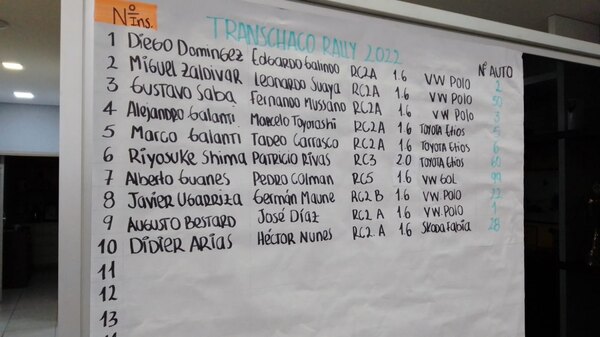 Nº Ins.
TRANSCHACO RALLY 2022
Nº AUTO
1 DIEGO DOMINGEZ EDGARDO GALINDO RC2A 1.6 VW POLO 2
2 MIGUEL ZALDIVAR LEONARDO SUAYA RC2A 1.6 VW POLO 50
3 GUSTAVO SABA FERNANDO MUSSANO RC2A 1.6 VW POLO 3
4 Alejandro Galanti MARCELO TOYOTOSHI RC2A 1.6 TOYOTA Etios 5
5 MARCO GALANTI TADEO CARRASCO RC2A 1.6 TOYOTA Etios 6
6 RIYOSUKE SHIMA PATRICIO RIVAS RC3 2.0 TOYOTA Etios 60
7 Alberto GUANES PEDRO COLMAN RC5 1.6 VW GOL 99
8 JAVIER UGARRIZA GERMÁN MAUNE RC2 B 1.6 VW POLO 22
9 AUGUSTO BESTARD JOSÉ DÍAZ RC2 A 1.6 VW POLO 1
10 DIDIER ARIAS HÉCTOR NUNES RC2. A 1.6 SKODA FABIA 28
11
12
13